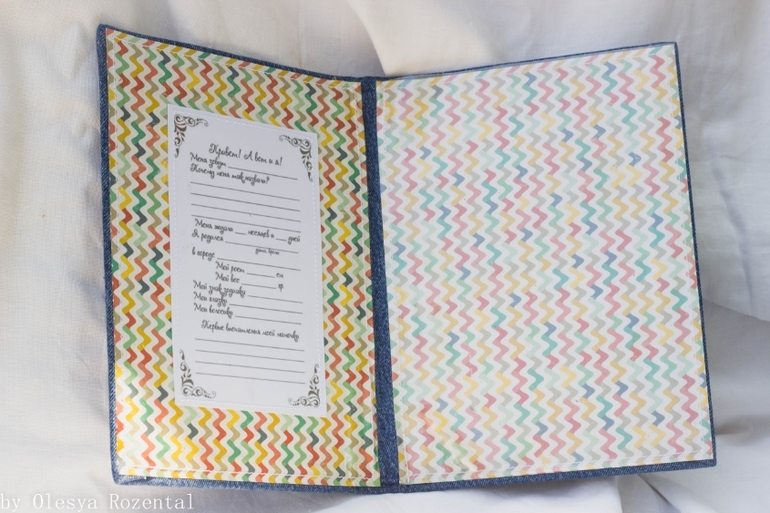 Привет! А вот и я!
Меня зовут
Почему меня так назвали?
Меня ждали ___ месяцев и ___ дней
Я родился
дата, время
в городе
Мой рост ______ см
Мой вес ______ гр
Мой знак зодиака
Мои глазки
Мои волосики
Первые впечатления моей мамочки
by Olesya Rozental